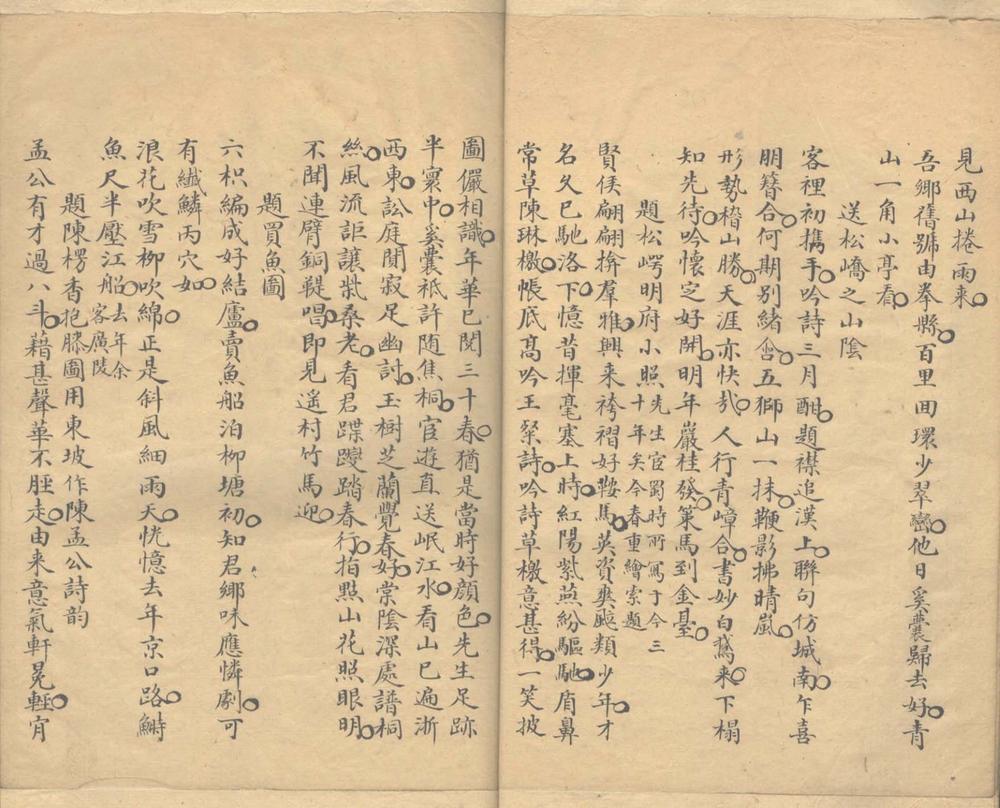 見西山捲雨來
吾鄉舊號由拳縣百里回環少翠巒他日奚囊歸去好青
山一角小亭看
送松嶠之山陰
客裡初攜手吟詩三月酣題襟追漢上聯句仿城南乍喜
朋簪合何期別緒含五獅山一抹鞭影拂晴嵐
形勢稽山勝天涯亦快哉人行青嶂合書妙白鵞來下榻
知先待吟懷定好開明年巖桂發策馬到金臺
題松崿明府小照先生官蜀時所寫于今三
十年矣今春重繪索題
賢侯翩翩擠羣雅興來袴褶好鞍馬英資爽颷類少年才
名久已馳洛下憶昔揮毫塞上時紅陽紫燕紛驅馳盾鼻
常草陳琳檄帳底高吟王粲詩吟詩草檄意甚得一笑披
圖儼相識年華已閱三十春猶是當時好顏色先生足跡
半寰中奚囊祇許隨焦桐宦遊直送岷江水看山已遍浙
西東訟庭閴寂足幽討玉樹芝蘭覺春好棠陰深處譜桐
絲風流詎讓甞桑老看君蹀躞踏春行指點山花照眼明
不聞連臂銅鞮唱即見遙村竹馬迎
題買魚圖
六枳編成好結廬賣魚船泊柳塘初知君鄉味應憐劇可
有纖鱗丙穴如
浪花吹雪柳吹綿正是斜風細雨天恍憶去年京口路鰣
魚尺半壓江船去年余
客廣陵
題陳楞香抱膝圖用東坡作陳孟公詩韵
孟公有才過八斗藉甚聲華不脛走由來意氣軒冕輕宵